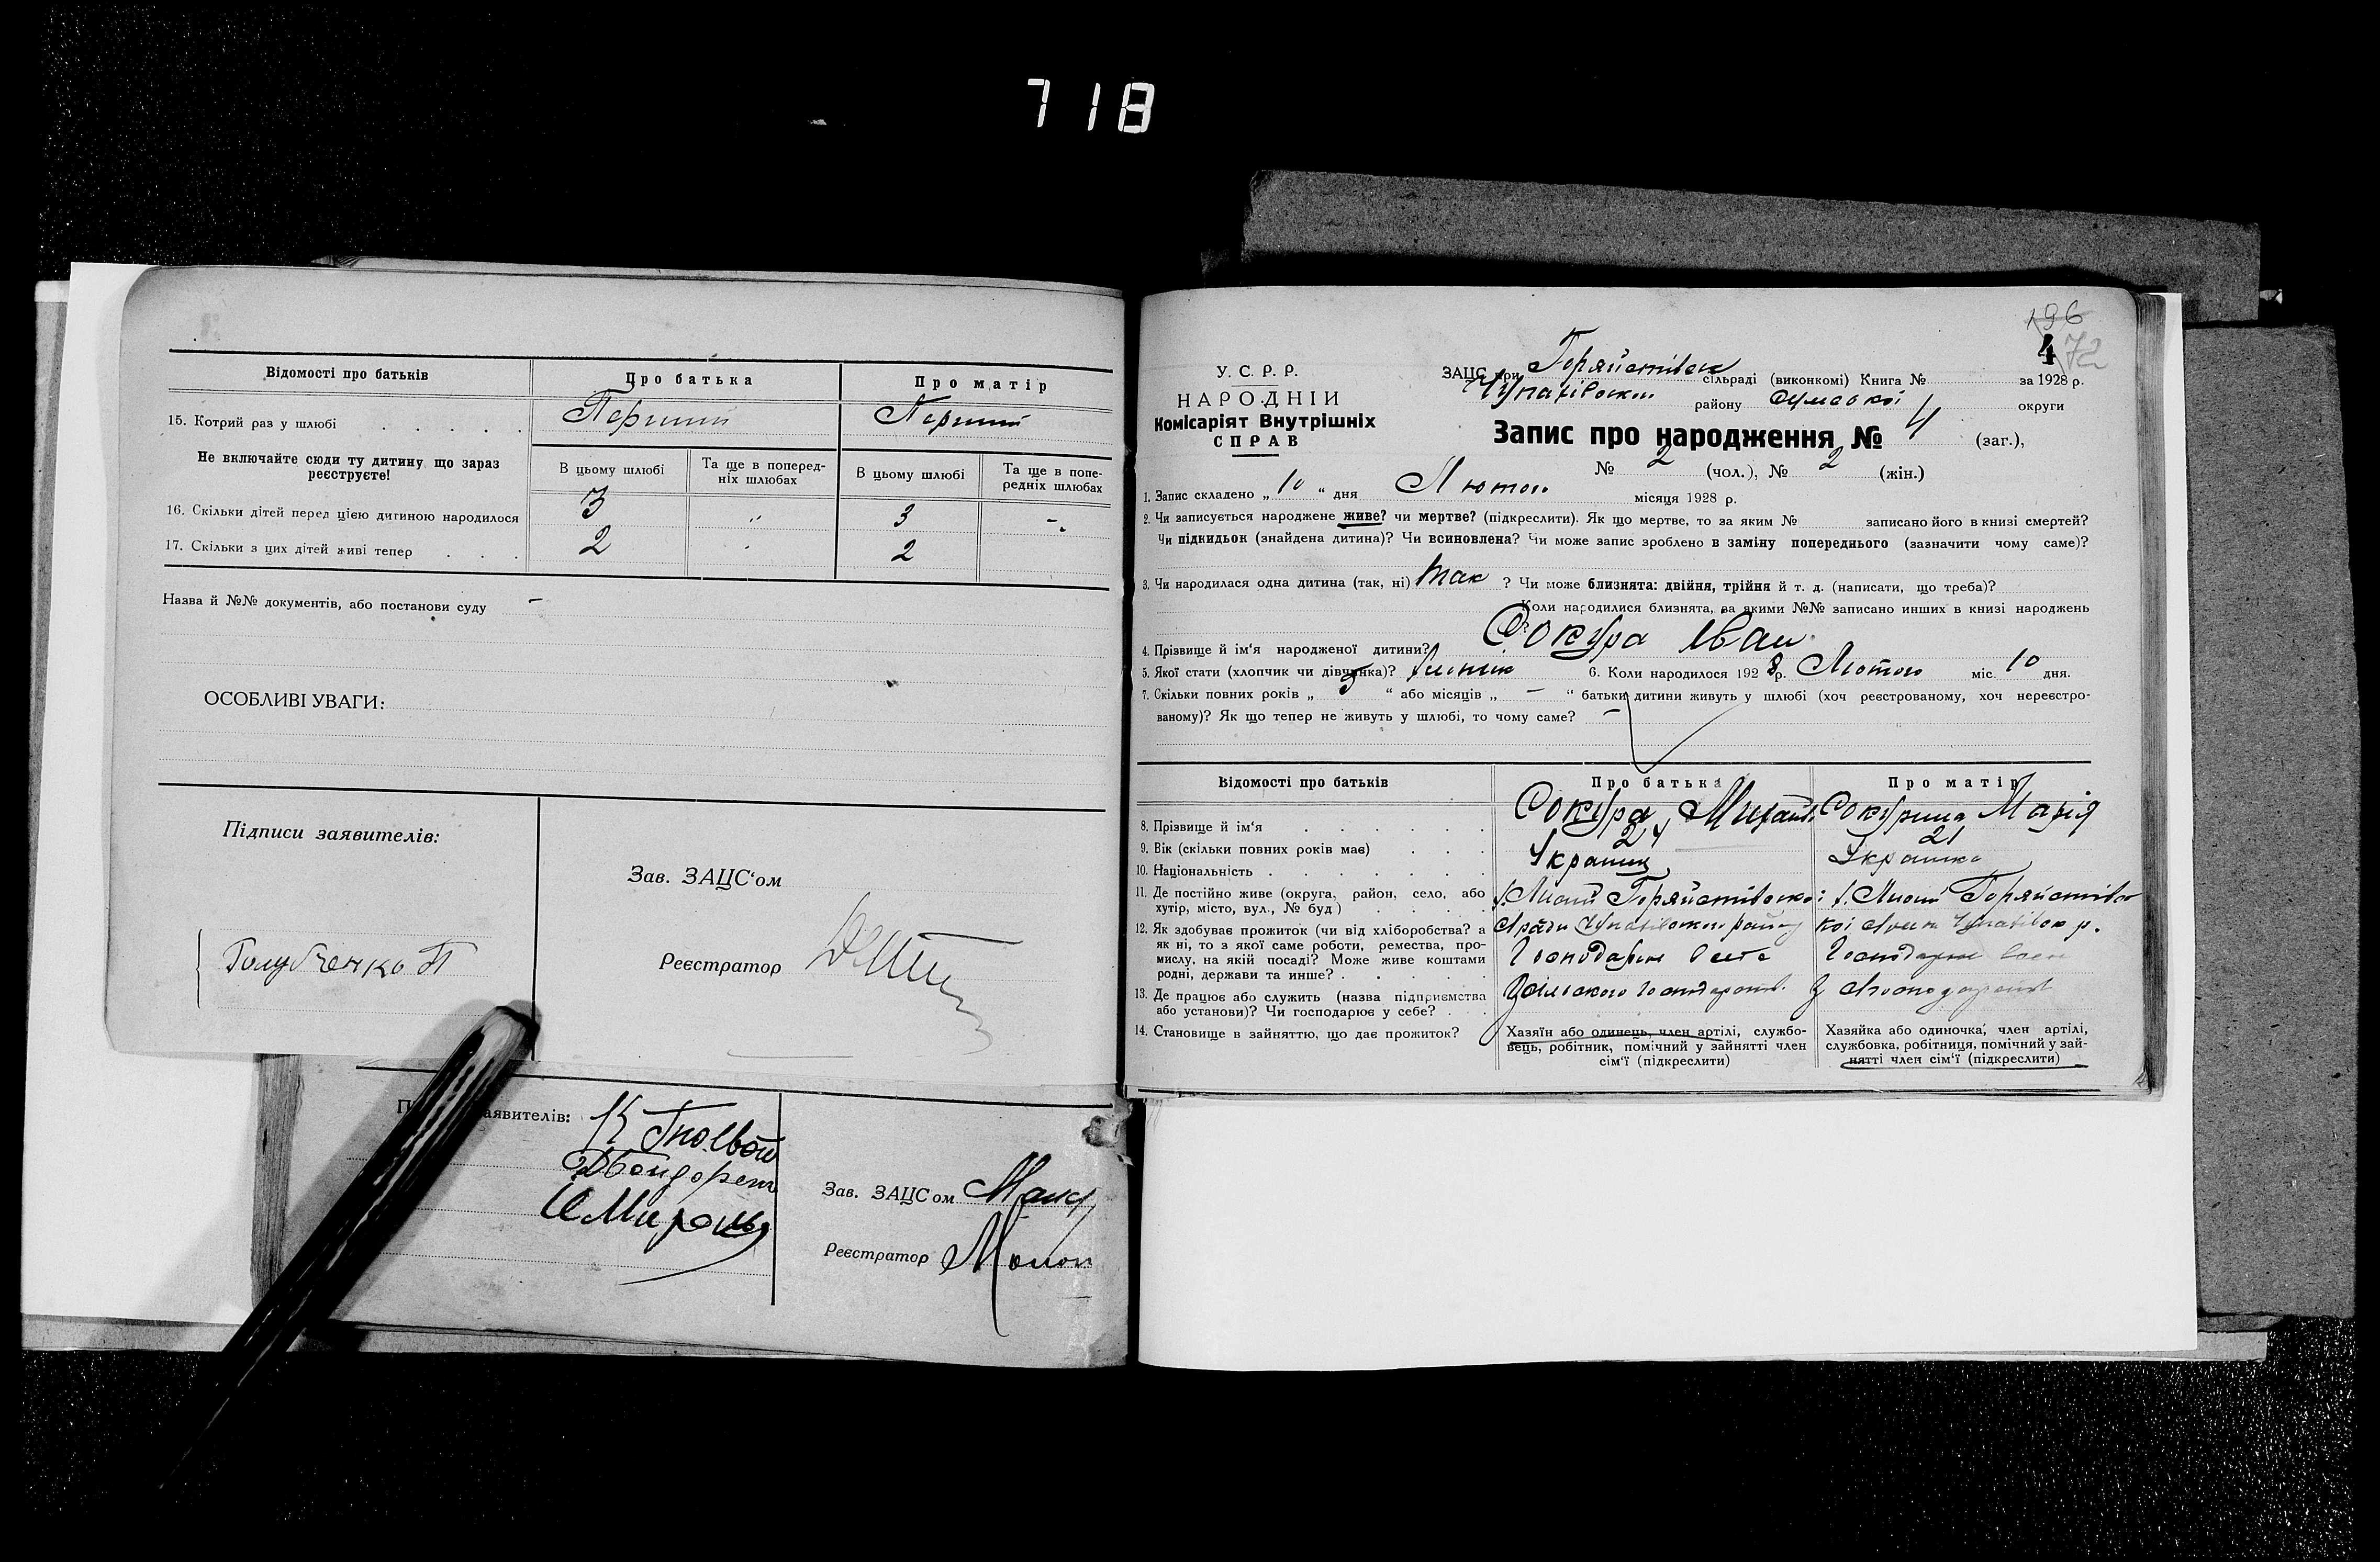 718
Відомості про батьків
Про батька
Про матір
15. Котрий раз у шлюбі
Перший
Перший
Не включайте сюди ту дитину, що зараз
реєструєте!
В цьому шлюбі
Та ще в поперед-
ніх шлюбах
В цьому шлюбі
Та ще в попе-
редніх шлюбах
16. Скільки дітей перед цією дитиною народилося
3
"
3
-
17. Скільки з цих дітей живі тепер
2
2
Назва й №№ документів, або постанови суду -
ОСОБЛИВІ УВАГИ:
Підписи заявителів:
Зав. ЗАЦС'ом
Голубченко П
Реєстратор
аявителів:
Зав. ЗАЦСом
Реєстратор
196
4 72
У. С. Р. Р.
НАРОДНІЙ
Комісаріят Внутрішніх
СПРАВ
ЗАЦС при сільраді (виконкомі) Книга № за 1928 р.
району Сумської округи
Запис про народження № 4 (заг.),
№ 2 (чол.), № 2 (жін.)
1. Запис складено „ 10 “ дня Лютого місяця 1928 р.
2. Чи записується народжене живе? чи мертве? (підкреслити). Як що мертве, то за яким № записано його в книзі смертей?
Чи підкидьок (знайдена дитина)? Чи всиновлена? Чи може запис зроблено в заміну попереднього (зазначити чому саме)?
3. Чи народилася одна дитина (так, ні) так ? Чи може близнята: двійня, трійня й т. д. (написати, що треба)?
Коли народилися близнята, за якими №№ записано инших в книзі народжень
4. Прізвище й ім'я народженої дитини? Сокура Іван
5. Якої стати (хлопчик чи дівчинка)? 6. Коли народилося 1928 р. Лютого міс. 10 дня.
7. Скільки повних років „ 5 “ або місяців „ - “ батьки дитини живуть у шлюбі (хоч реєстрованому, хоч нереєстро-
ваному)? Як що тепер не живуть у шлюбі, то чому саме? -
Відомості про батьків
Про батька
Про матір
8. Прізвище й ім'я
Сокура
Сокурина Марія
9. Вік (скільки повних років має)
24
21
10. Національність
Українец
Українка
11. Де постійно живе (округа, район, село, або
хутір, місто, вул., № буд)
12. Як здобуває прожиток (чи від хліборобства? а
як ні, то з якої саме роботи, ремества, про-
мислу, на якій посаді? Може живе коштами
родні, держави та инше?
13. Де працює або служить (назва підприємства
або установи)? Чи господарює у себе?
14. Становище в зайняттю, що дає прожиток?
Хазяїн або одинець, член артілі, службо-
вець, робітник, помічний у зайнятті член
сім'ї (підкреслити)
Хазяйка або одиночка, член артілі,
службовка, робітниця, помічний у зай-
нятті член сім'ї (підкреслити)